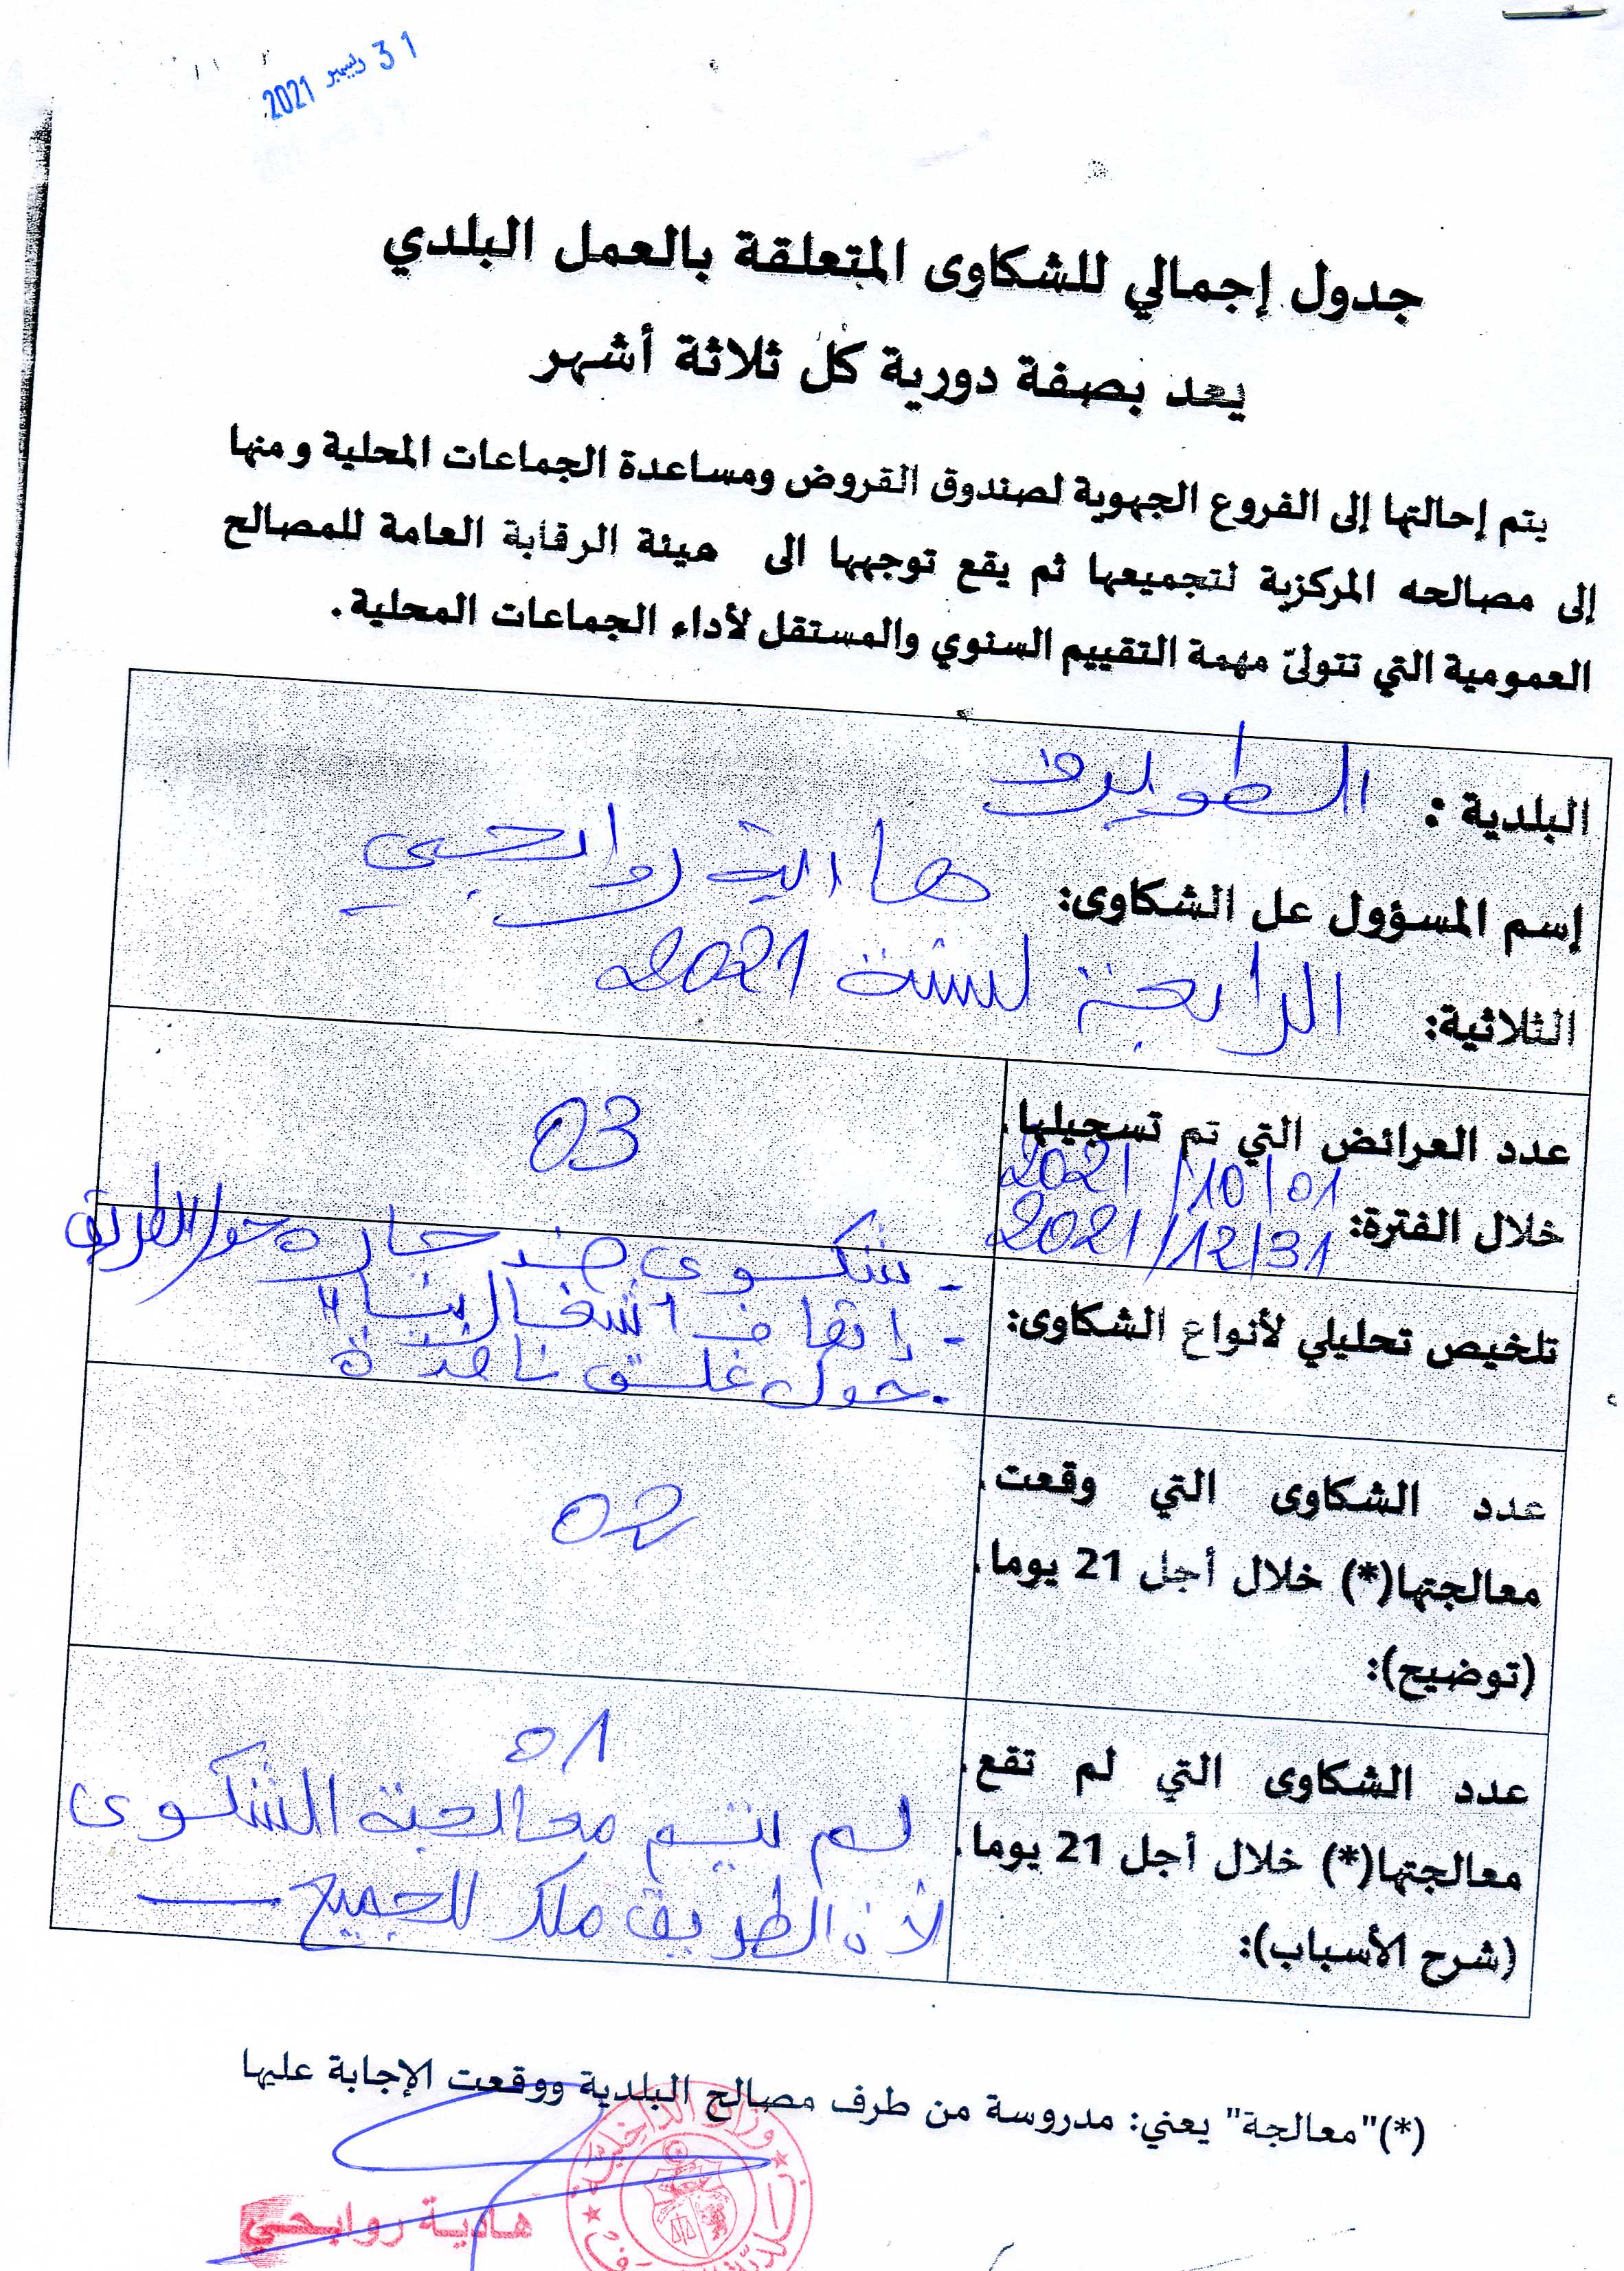 31 ديسمبر 2021
جدول إجمالي للشكاوى المتعلقة بالعمل البلدي
يعد بصفة دورية كل ثلاثة أشهر
يتم إحالتها إلى الفروع الجهوية لصندوق القروض ومساعدة الجماعات المحلية ومنها
إلى مصالحه المركزية لتجميعها ثم يقع توجهها الى هيئة الرقابة العامة للمصالح
العمومية التي تتولىّ مهمة التقييم السنوي والمستقل لأداء الجماعات المحلية.
البلدية : الطويرف
إسم المسؤول عل الشكاوى: هادية روابحي
الثلاثية: الرابعة لسنة 2021
عدد العرائض التي تم تسجيلها
2021/10/01
خلال الفترة: 2021/12/31
03
تلخيص تحليلي لأنواع الشكاوى:
- شكوى ضد جاره حول الطريق
- إيقاف أشغال بناء
- حول غلق نافذة
عدد الشكاوى التي وقعت
معالجتها(*) خلال أجل 21 يوما
(توضيح):
02
عدد الشكاوى التي لم تقع
معالجتها(*) خلال أجل 21 يوما
(شرح الأسباب):
01
لم يتم معالجة الشكوى
لأن الطريق ملك للجميع
(*)"معالجة" يعني: مدروسة من طرف مصالح البلدية ووقعت الإجابة عليها
وزارة الداخلية
هادية روابحي